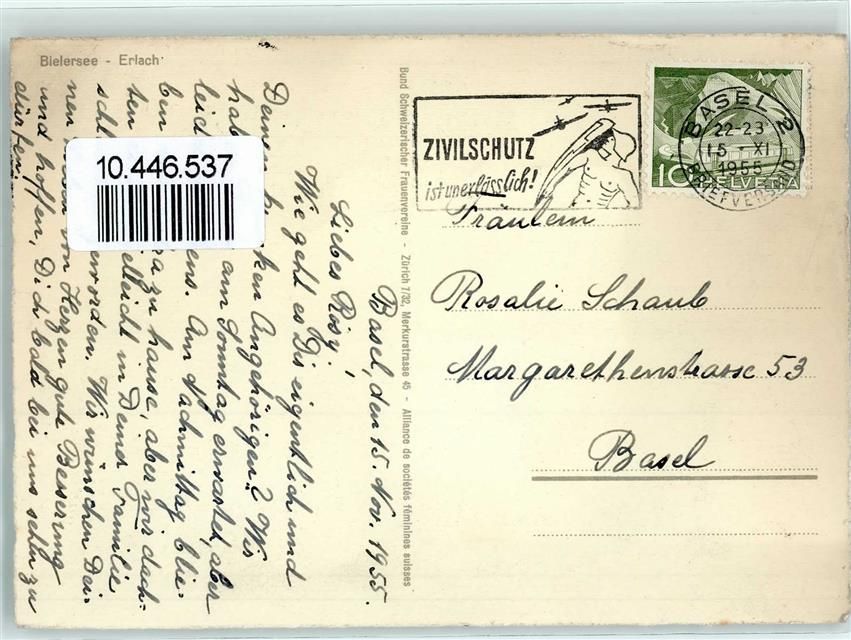 Bielersee - Erlach
Bund Schweizerischer Frauenvereine - Zürich 7/32, Merkurstrasse 45 - Alliance de sociétés féminines suisses
ZIVILSCHUTZ
ist unerlässlich!
BASEL 2
22-23
15.-XI
1955
BRIEFVERSAND
10 HELVETIA
Fräulein
Rosalie Schaub
Margarethenstrasse 53
Basel
10.446.537
Basel, den 15. Nov. 1955.
Liebes Rösy!
Wie geht es Dir eigentlich und
Deinen Angehörigen? Wir
hab am Sonntag erwartet, aber
leid ens. Am Nachmittag blie-
ben a zu hause, aber wir dach-
ten elleicht in Deiner Familie
sch eworden. Wir wünschen Dei-
nen von Herzen gute Besserung
und hoffen, Dich bald bei uns sehen zu
dürfen.